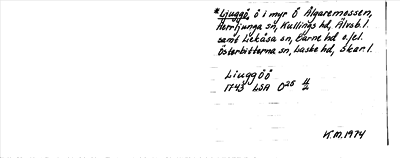 *Ljuggö, ö i myr Ö Älgaremossen,
Herrljunga sn, Kullings hd, Älvsb.l.
samt Lekåsa sn, Barne hd o.fl.
Österbitterna sn, Laske hd, Skar.l.
Liuggöö
1743 LSA O28 11/2
K.M.1974